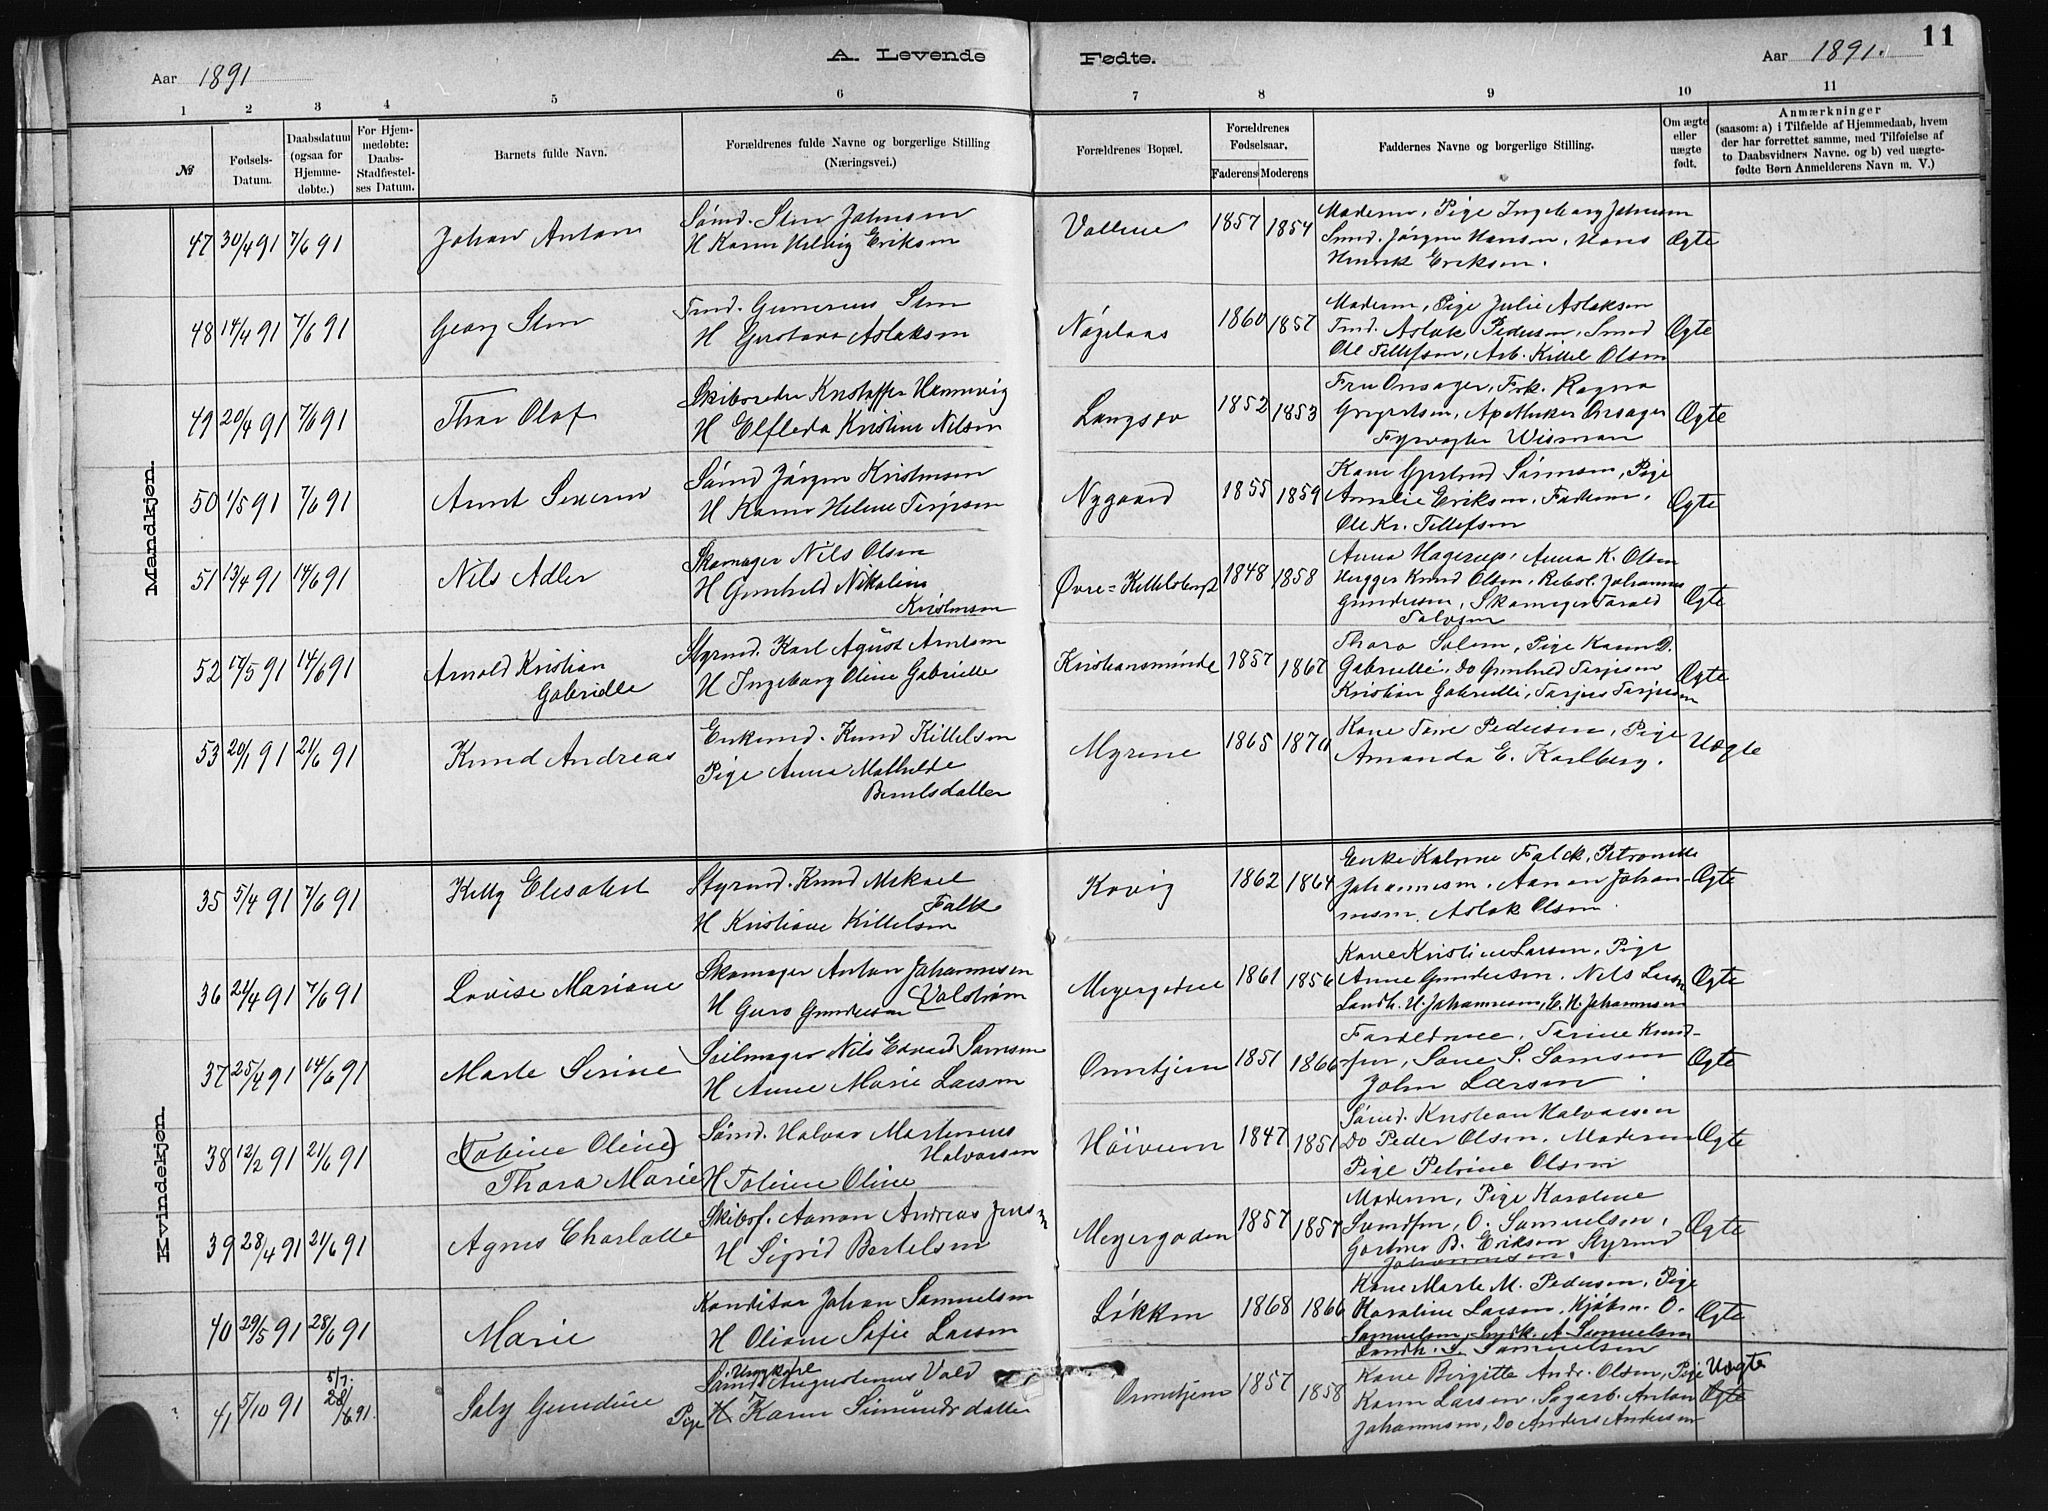 11
A. Levende Fødte.
Aar 1891
Aar 1891.
1 2 3 4 5 6 7 8 9 10 11
№
Fødsels-Datum.
Daabsdatum (ogsaa for Hjemme-døbte.)
For Hjem-medøbte: Daabs-Stadfæstel-ses Datum.
Barnets fulde Navn.
Forældrenes fulde Navne og borgerlige Stilling (Næringsvei.)
Forældrenes Bopæl.
Forældrenes Fødselsaar.
Faderens Moderens
Faddernes Navne og borgerlige Stilling.
Om ægte eller uægte født.
Anmærkninger
(saasom: a) i Tilfælde af Hjemmedaab, hvem
der har forrettet samme, med Tilføielse af
to Daabsvidners Navne. og b) ved uægte-
fødte Børn Anmelderens Navn m. V.)
Mandkjøn.
47 30/4 91 7/6 91 Johan Anton
Sømd. Sten Johnsen
H Karen Helvig Eriksen
Vollene 1857 1854
Moderen, Pige Ingeborg Johnsen
Smd. Jørgen Hansen, Hans
Henrik Eriksen.
Ægte
48 14/4 91 7/6 91 Georg Sten
Tmd. Gunerius Sten
H Gustava Aslaksen
1860 1857
Moderen, Pige Julie Aslaksen
Tmd. Aslak Pedersen, Smd
Ole Tellefsen, Arb. Kittel Olsen
Ægte
49 20/4 91 7/6 91 Thor Olaf
Skibsreder Kristoffer Hannevig
H Elfleda Kristine Nilsen
Langsev 1852 1853
Fru Onsager, Frk. Ragna
Gregertsen, Apotheker Onsager
Fyrvogter Wisman
Ægte
50 1/5 91 7/6 91 Arnt Severin
Sømd Jørgen Kristensen
H Karen Helene Terjesen
Nygaard 1855 1859
Kone Gjertrud Sørensen, Pige
Amalie Eriksen, Faderen,
Ole Kr. Tellefsen
Ægte
51 13/4 91 14/6 91 Nils Adler
Skomager Nils Olsen
H Gunhild Nikoline
Kristensen
Øvre=Kittelsbugt 1848 1858
Anna Hagerup, Anna K. Olsen
Knud Olsen, Rebsl. Johannes
Gundersen, Skomager Tarald
Ægte
52 17/5 91 14/6 91 Arnold Kristian
Gabrielle
Styrmd. Karl Agust Arntsen
H Ingeborg Oline Gabrielle
Kristiansminde 1857 1867
Thora Salem, Pige Karen D.
Gabrielli, Do Gunhild Terjesen
Kristian Gabrielli, Tarjus Tarjusen
Ægte
53 20/1 91 21/6 91 Knud Andreas
Enkemd. Knud Kittelsen
Pige Anna Mathilde
Berntsdatter
Myrene 1865 1870
Kone Tone Pedersen, Pige
Amanda E. Karlberg.
Uægte
Kvindekjøn.
35 5/4 91 7/6 91 Kitty Elisabet
Styrmd. Knud Mikael
Falk
H Kristiane Kittelsen
Kovig 1862 1864
Enke Kalrine Falck, Petronelle
Johannesen, Aanon Johan-
nesen, Aslak Olsen.
Ægte
36 21/4 91 7/6 91 Lovise Mariane
Skomager Anton Johannesen
Valstrøm
H Guro Gundersen
Meyergodene 1861 1856
Kone Kristine Larsen, Pige
Anne Gundersen, Nils Larsen
Landh. H. Johannesen, E. H. Johannesen
Ægte
37 25/4 91 14/6 91 Marte Serine
Seilmager Nils Edvard Samsen
H Anne Marie Larsen
Omntjern 1851 1866
Forældrene, Tarine Knud-
sen, Sone S. Samsen
John Larsen.
Ægte
38 12/2 91 21/6 91 (Tobine Oline)
Thora Marie
Sømd. Halvor Martinius
Halvorsen
H Tobine Oline
Höiveien 1847 1851
Sømd. Kristian Halvorsen
Do Peder Olsen. Moderen
Pige Petrine Olsen
Ægte
39 28/4 91 21/6 91 Agnes Charlotte
Skibsf. Aanon Andreas Jensen
H Sigrid Bertelsen
Meyergoden 1857 1857
Moderen, Pige Karoline
Sandsen, O. Samuelsen,
Gartner B. Eriksen, Styrmd
Johannesen.
Ægte
40 29/5 91 28/6 91 Marie
Konditor Johan Samuelsen
H Oliane Sofie Larsen
Løkken 1868 1866
Kone Marte M. Pedersen, Pige
Karoline Larsen, Kjøbm. O.
Samuelsen, Smdk. A. Samuelsen
Landh. S. Samuelsen
Ægte
41 5/10 91 5/7. 28/6 91. Saly Gundine
Ungkarl
Sømd. Augustinus Vold
Pige H Karen Simundsdatter
Omntjern 1857 1858
Kone Birgitte Andr. Olsen, Pige
Karen Larsen, Sagarb. Anton
Johannesen, Do Anders Andersen
Uægte
Ægte